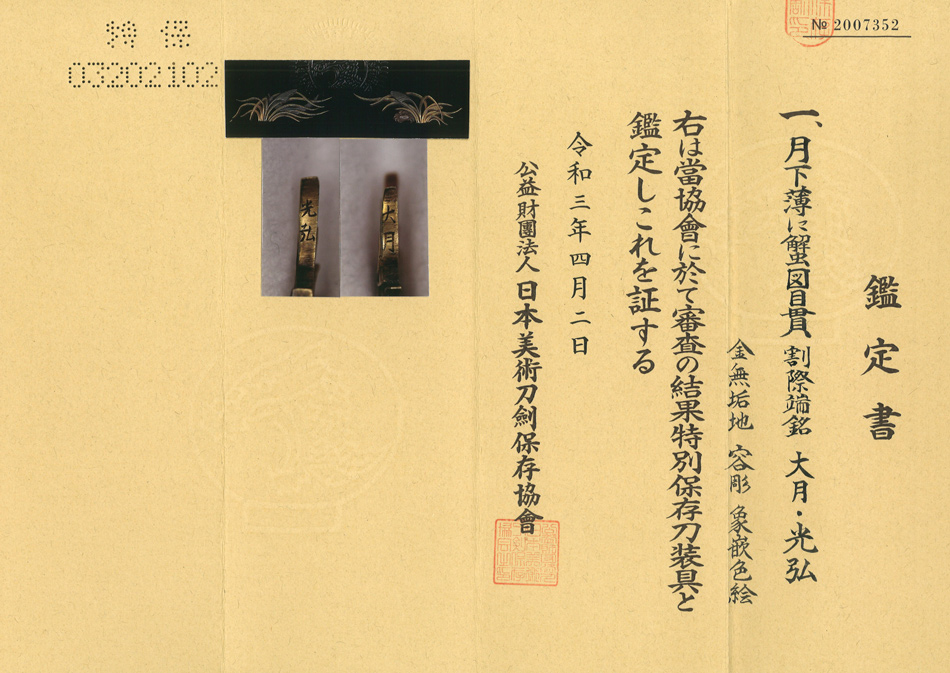 № 2007352
鑑定書
一、月下薄に蟹図目貫 割際端銘 大月・光弘
金無垢地 容彫 象嵌色絵
右は當協會に於て審査の結果特別保存刀装具と
鑑定しこれを証する
令和三年四月二日
公益財團法人 日本美術刀劍保存協會
特保
03202102
光弘
大月